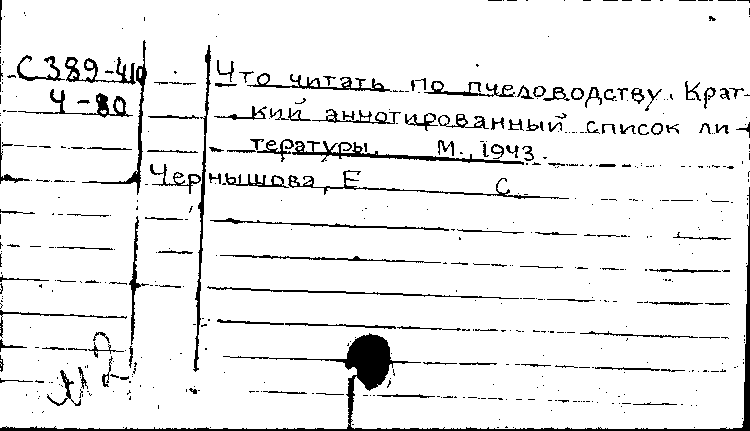 С389-410
Ч-80
Что читать по пчеловодству. Крат-
кий аннотированный список ли-
тературы. М., 1943.
Чернышова, Е С